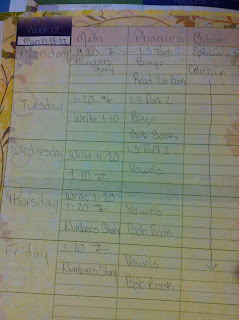 Week of: Math Phonics Bible
March 18-22
Monday 1-20 1.3 Part 2 Ephesians
Numbers Bingo
Story Read Bob Book
Tuesday 1-20 1.3 Part 2
Write 1-10 Bingo
Bob Book
Wednesday Write 11-20 1.3 Part 2
1-20 Vowels
Thursday Write 1-20
1-20 Vowels
Numbers Story Bob Book
Friday 1-20
Vowels
Numbers Story
Bob Book